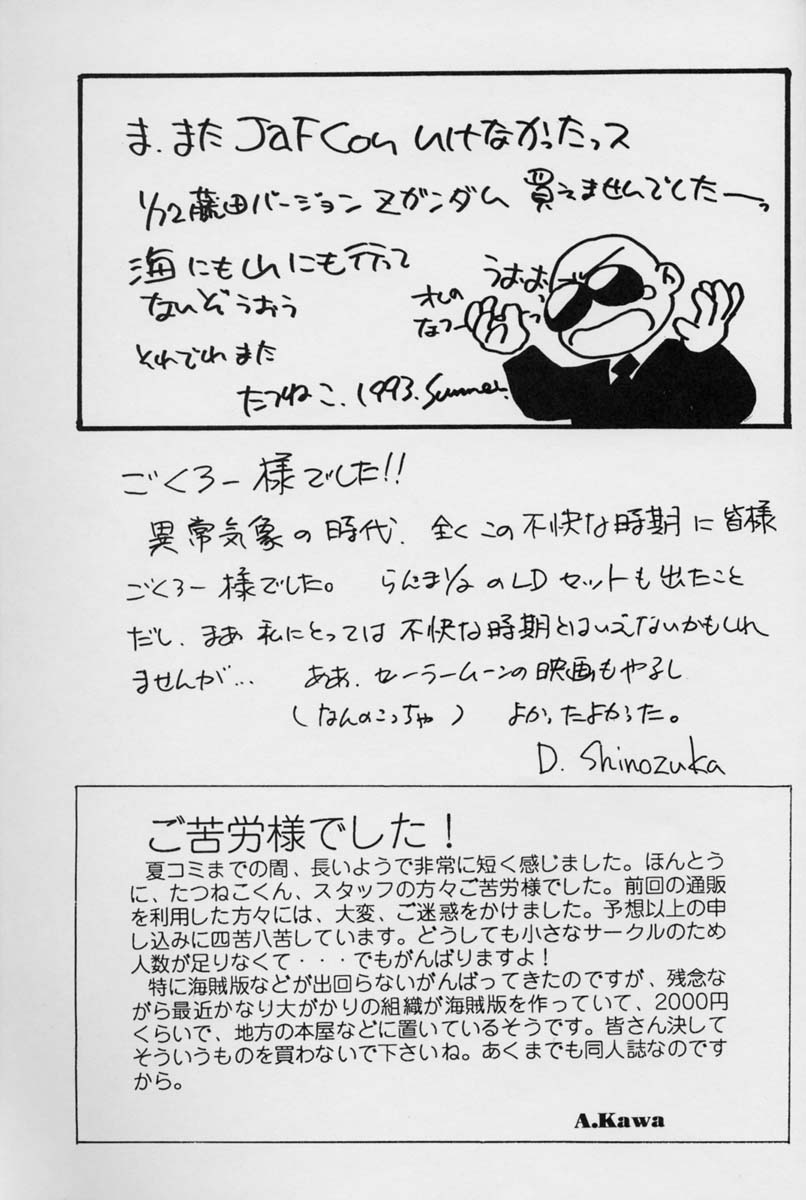 ま、また JaFCon いけなかったっス
1/72藤田バージョン Zガンダム 買えませんでしたーっ
海にも山にも行って
ないぞうおう
それでわまた
たつねこ. 1993. Summer.
うおおっ
オレの
なつーっ
ごくろー様でした!!
異常気象の時代、全くこの不快な時期に皆様
ごくろー様でした。 らんま1/2のLDセットも出たこと
だし、まあ私にとっては不快な時期とはいえないかもしれ
ませんが… ああ、セーラームーンの映画もやるし
(なんのこっちゃ) よかったよかった。
D. Shinozuka
ご苦労様でした!
夏コミまでの間、長いようで非常に短く感じました。ほんとう
に、たつねこくん、スタッフの方々ご苦労様でした。前回の通販
を利用した方々には、大変、ご迷惑をかけました。予想以上の申
し込みに四苦八苦しています。どうしても小さなサークルのため
人数が足りなくて・・・でもがんばりますよ!
特に海賊版などが出回らないがんばってきたのですが、残念な
がら最近かなり大がかりの組織が海賊版を作っていて、2000円
くらいで、地方の本屋などに置いているそうです。皆さん決して
そういうものを買わないで下さいね。あくまでも同人誌なのです
から。
A.Kawa